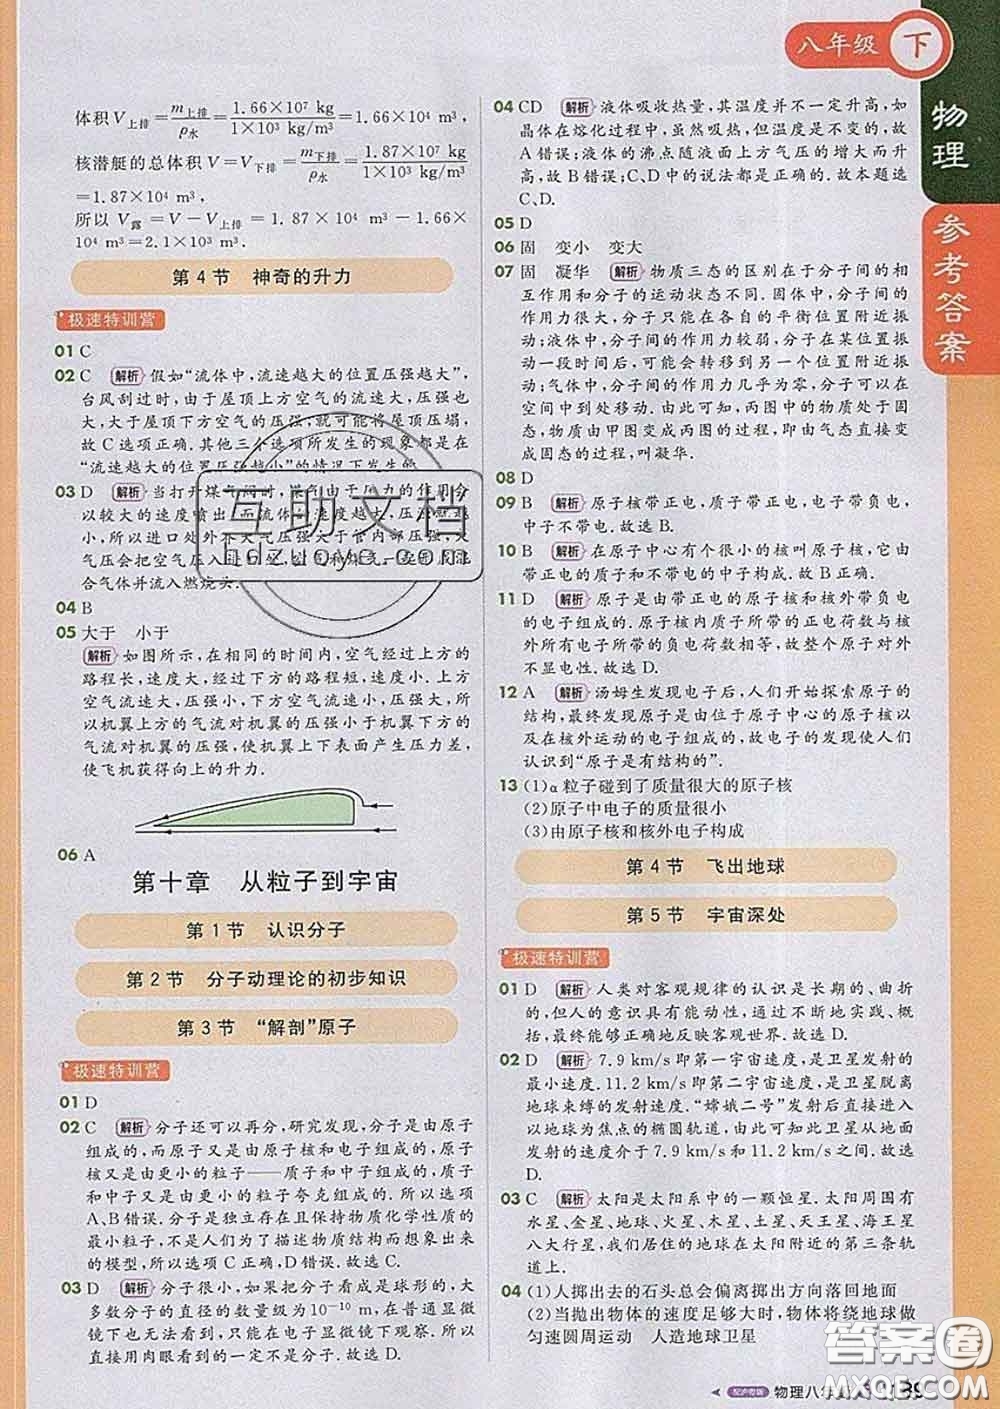 八年级 下
物理
参考答案
体积V上排=m上排/ρ水=1.66×10⁷ kg/1×10³ kg/m³=1.66×10⁴ m³,
核潜艇的总体积V=V下排=m下排/ρ水=1.87×10⁷ kg/1×10³ kg/m³
=1.87×10⁴ m³,
所以 V露=V-V上排=1.87×10⁴ m³-1.66×
10⁴ m³=2.1×10³ m³.
第4节 神奇的升力
极速特训营
01 C
02 C 解析 假如“流体中,流速越大的位置压强越大”,
台风刮过时,由于屋顶上方空气的流速大,压强也
大,大于屋顶下方空气的压强;就可能将屋顶压塌,
故C选项正确.其他三个选项所发生的现象都是在
“流速越大的位置压强越小”的情况下发生的.
03 D 解析 当打开煤气阀时,煤气由于风力的作用分
以较大的速度喷出
力小,所以进口处外
气压会把空气压入进口
合气体并流入燃烧头.
04 B
05 大于 小于
解析 如图所示,在相同的时间内,空气经过上方的
路程长,速度大,经过下方的路程短,速度小.上方
空气流速大,压强小,下方空气流速小,压强大,所
以机翼上方的气流对机翼的压强小于机翼下方的
气流对机翼的压强,使机翼上下表面产生压力差,
使飞机获得向上的升力.
06 A
第十章 从粒子到宇宙
第1节 认识分子
第2节 分子动理论的初步知识
第3节 “解剖”原子
极速特训营
01 D
02 C 解析 分子还可以再分,研究发现,分子是由原子
组成的,而原子又是由更小的粒子组成的,如原子
核又是由更小的粒子——质子和中子组成的,质子
和中子又是由更小的粒子夸克组成的.所以选项
A、B错误.分子是独立存在且保持物质化学性质的
最小粒子,不是人们为了描述物质结构而建立起来
的模型,所以选项C正确,D错误.故选C.
03 D 解析 分子很小,如果把分子看成是球形的,大
多数分子的直径的数量级为10⁻¹⁰ m,在普通显微
镜下也无法看到,只能在电子显微镜下观察.所以
直接用肉眼看到的一定不是分子.
04 CD 解析 液体吸收热量,其温度不一定升高,如
晶体在熔化过程中,虽然吸热,但温度是不变的,故
A错误;液体的沸点随液面上方气压的增大而升
高,故B错误;C、D中的说法都是正确的.故本题选
C、D.
05 D
06 固 变小 变大
07 固 凝华 解析 物质三态的区别在于分子间的相
互作用和分子的运动状态不同.固体中,分子间的
作用力很大,分子只能在各自的平衡位置附近振
动;液体中,分子间的作用力较弱,分子在某位置振
动一段时间后,可能会转移到另一位置附近去振
动;气体中,分子间的作用力几乎为零,分子可以在
空间中到处移动.由此可知,丙图中的物质处于固
态,物质由甲图变成丙图的过程,即由气态直接变
成固态的过程,叫凝华.
08 D
09 B 解析 原子核带正电,质子带正电,电子带负电,
中子不带电.故选B.
10 B 解析 在原子中心有个很小的核叫原子核,它由
带正电的质子和不带电的中子构成.故B正确.
11 D 解析 原子是由带正电的原子核和核外带负电
的电子组成的.原子核内质子所带的正电荷数和核
外所有电子所带的负电荷数相等,故整个原子对外
不显电性.故选D.
12 A 解析 汤姆生发现电子后,人们开始探索原子的
结构,最终发现原子是由位于原子中心的原子核以
及在核外运动的电子组成的,故电子的发现使人们
认识到“原子是有结构的”.
13 (1)α粒子碰到了质量很大的原子核
(2)原子中电子的质量很小
(3)由原子核和核外电子构成
第4节 飞出地球
第5节 宇宙深处
极速特训营
01 D 解析 人类对客观规律的认识是长期的、曲折
的,但人的意识具有能动性,通过不断地实践、概
括,最终能够正确地反映客观世界.故选D.
02 D 解析 7.9 km/s即第一宇宙速度,是卫星发射的
最小速度.11.2 km/s即第二宇宙速度,是卫星脱离
地球束缚的发射速度.“嫦娥二号”发射后直接进入
以地球为焦点的椭圆轨道,由此可知,卫星从地面
发射的速度介于7.9 km/s和11.2 km/s之间.故选
D.
03 C 解析 太阳是太阳系中的一颗恒星.太阳周围有
水星、金星、地球、火星、木星、土星、天王星、海王星
八大行星,我们居住的地球在太阳附近的第三条轨
道上.
04 (1)人掷出去的石头总会偏离掷出方向落回地面
(2)当抛出物体的速度足够大时,物体将绕地球做
匀速圆周运动 人造地球卫星
配沪粤版 物理八年级 39
互助文档
答案圈
MXQE.COM